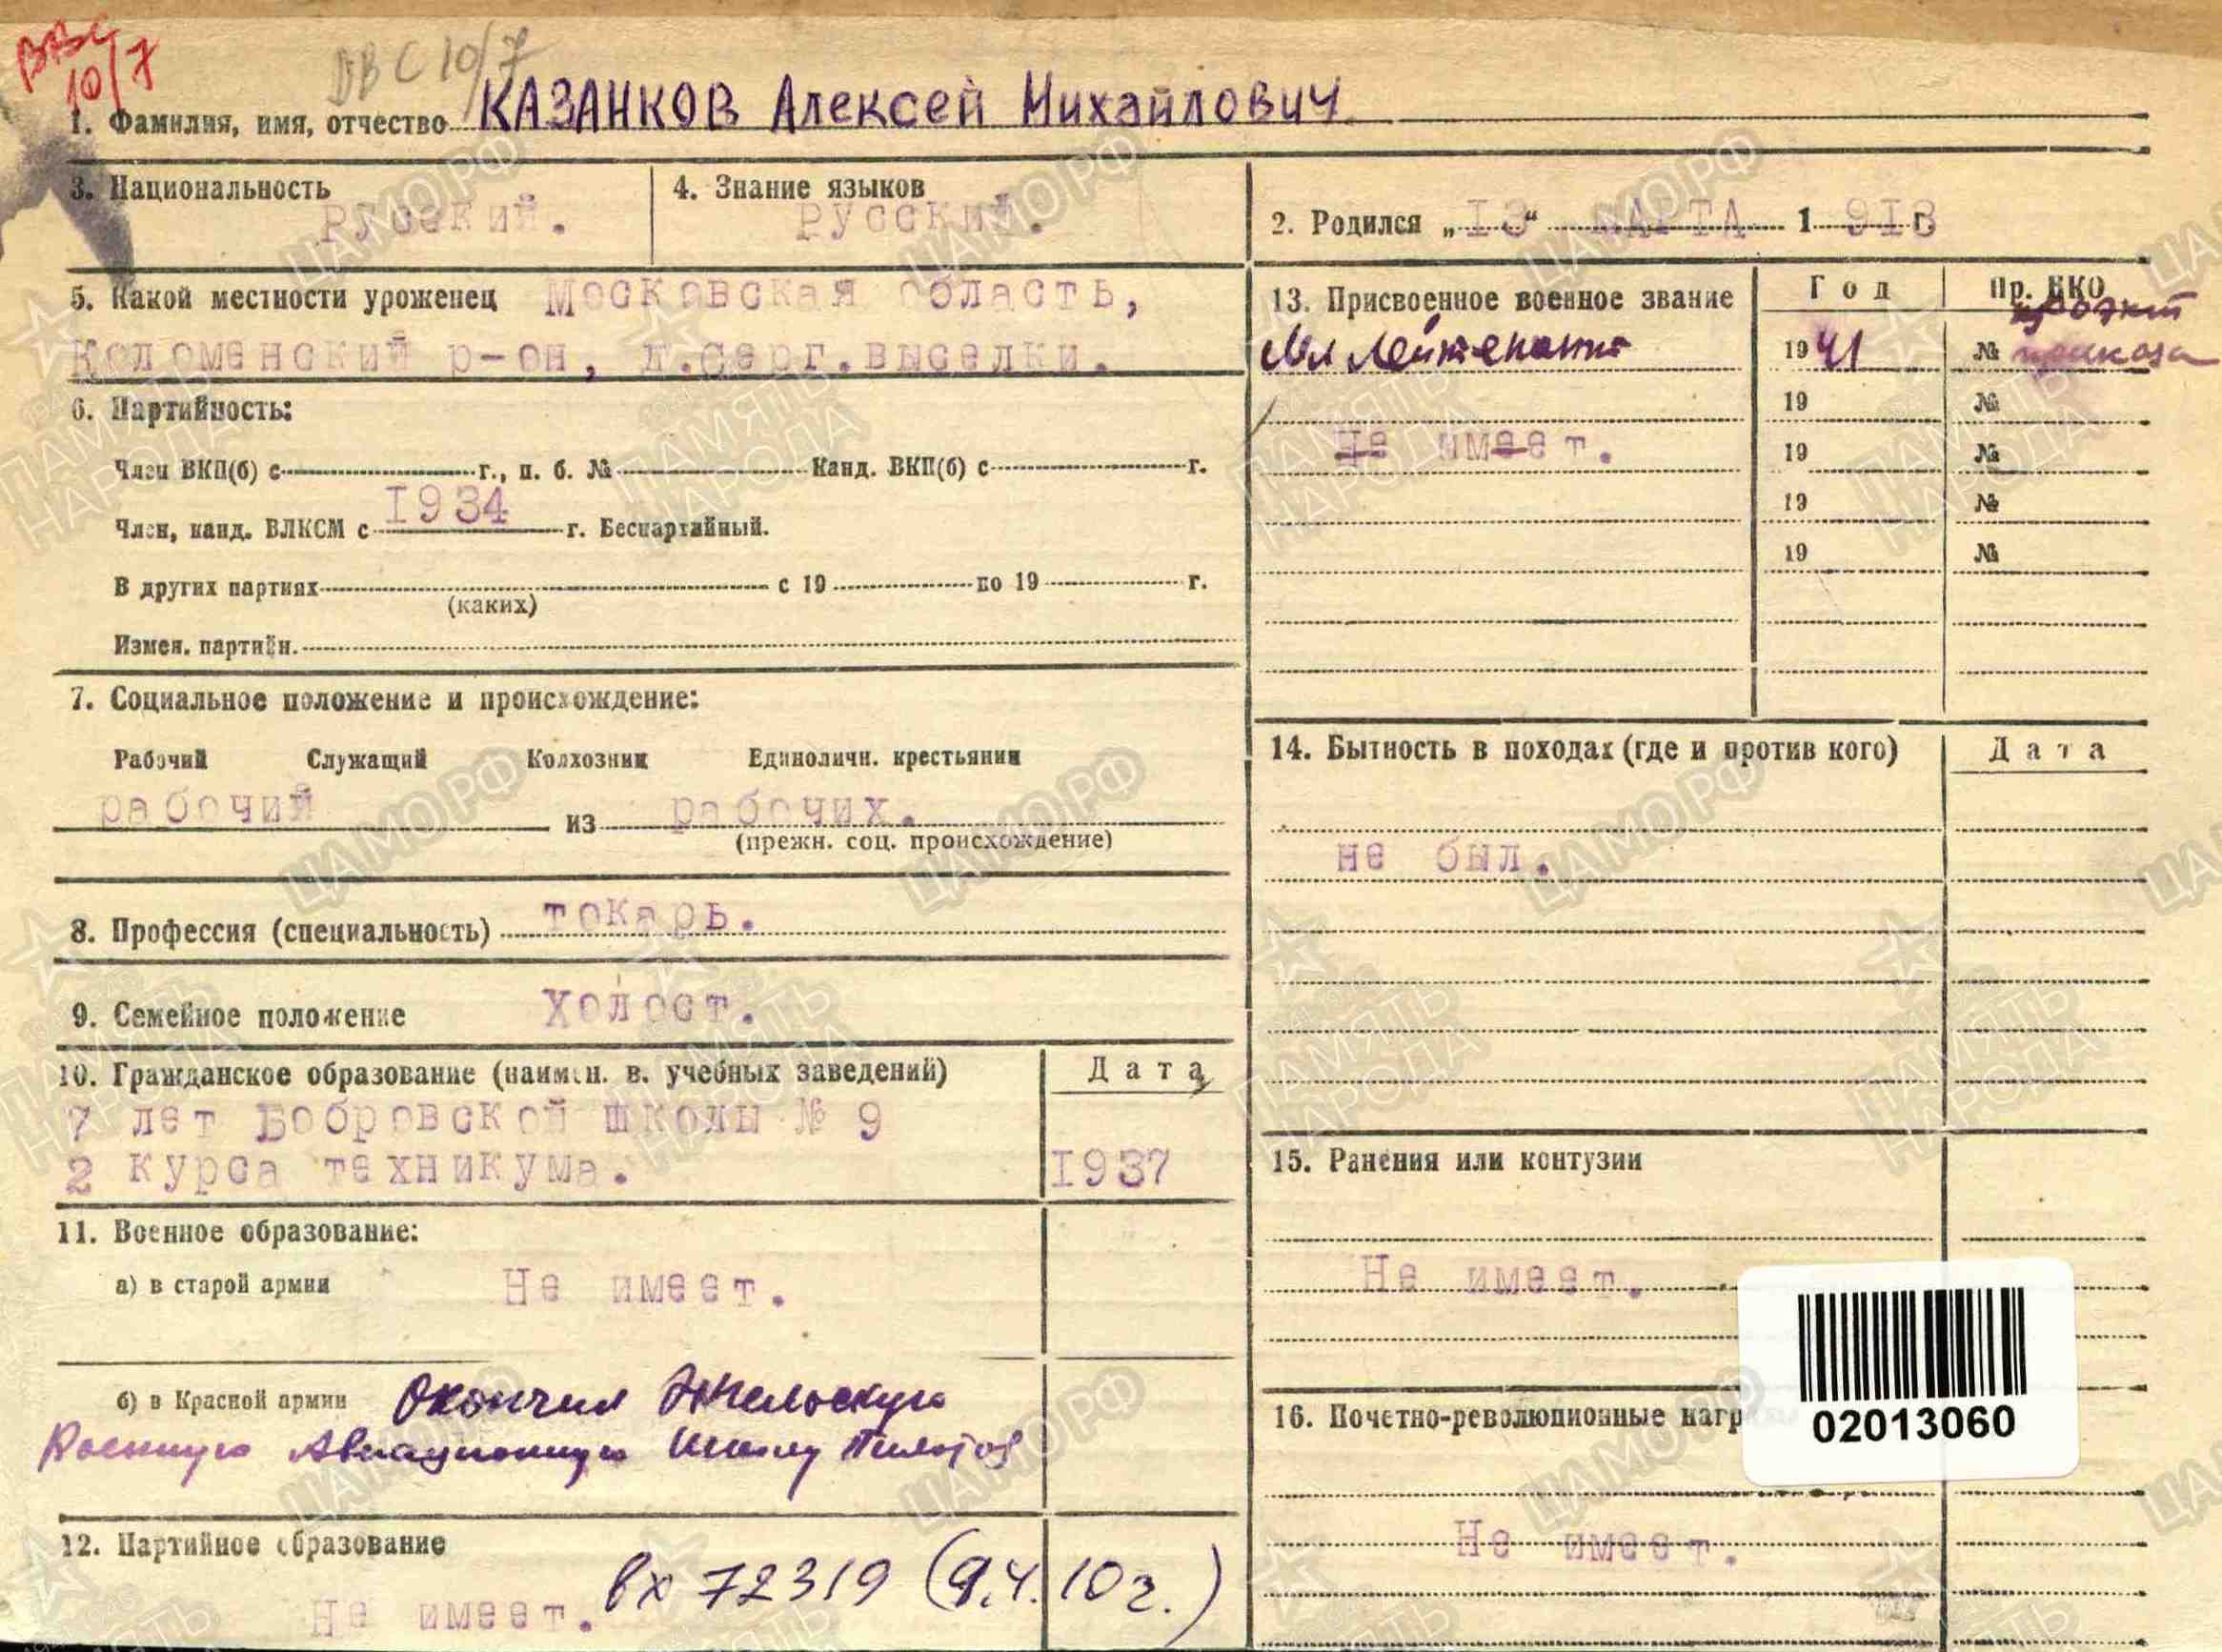 ВВС
10/7
ВВС 10/7
1. Фамилия, имя, отчество КАЗАНКОВ Алексей Михайлович
3. Национальность
Русский.
4. Знание языков
Русский.
2. Родился „13“ МАРТА 1 918 г.
5. Какой местности уроженец Московская область,
Коломенский р-он, д.серг.выселки.
6. Партийность:
Член ВКП(б) с г., п. б. № Канд. ВКП(б) с г.
Член, канд. ВЛКСМ с 1934 г. Беспартийный.
В других партиях с 19 по 19 г.
(каких)
Измен. партийн.
7. Социальное положение и происхождение:
Рабочий Служащий Колхозник Единоличн. крестьянин
рабочий из рабочих.
(прежн. соц. происхождение)
8. Профессия (специальность) токарь.
9. Семейное положение Холост.
10. Гражданское образование (наимен. в. учебных заведений) Дата
7 лет Бобровской школы № 9
2 курса техникума. 1937
11. Военное образование:
а) в старой армии Не имеет.
б) в Красной армии Окончил Энгельсскую
Военную Авиационную Школу Пилотов
12. Партийное образование
Не имеет.
вх 72319 (9.4.10г.)
13. Присвоенное военное звание Год Пр. НКО
проэкт
Мл Лейтенант 1941 № приказа
19 №
Не имеет. 19 №
19 №
19 №
14. Бытность в походах (где и против кого) Дата
не был.
15. Ранения или контузии
Не имеет.
16. Почетно-революционные нагр
Не имеет.
02013060
ЦАМО.РФ
ПАМЯТЬ
НАРОДА